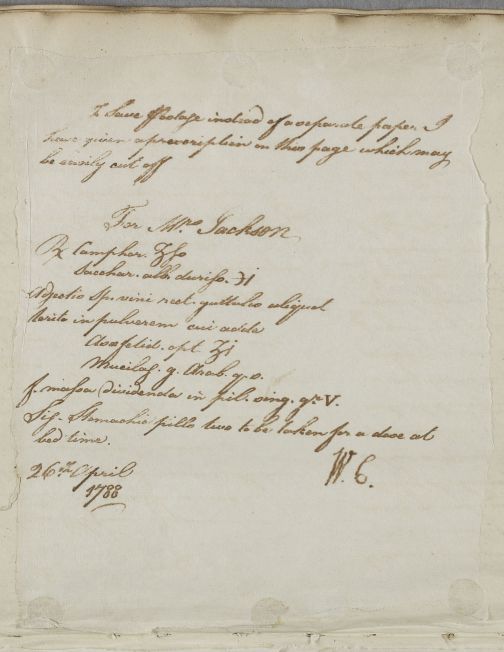 To Save Postage instead of a separate paper I
have given a prescription on this page which may
be easily cut off
For Mrs. Jackson
℞ Camphor. ʒſs
Sacchar. alb. duriſs. ʒi
Adjectis Sp. vini rect. guttulis aliquot
terito in pulverem cui adde
Assæ fetid. opt. ʒi
Mucilag. g. Arab. q. s.
f. massa dividenda in pil. sing. gr. V.
Sig. Stomachic pills two to be taken for a dose at
bed time.
26th April
1788
W. C.